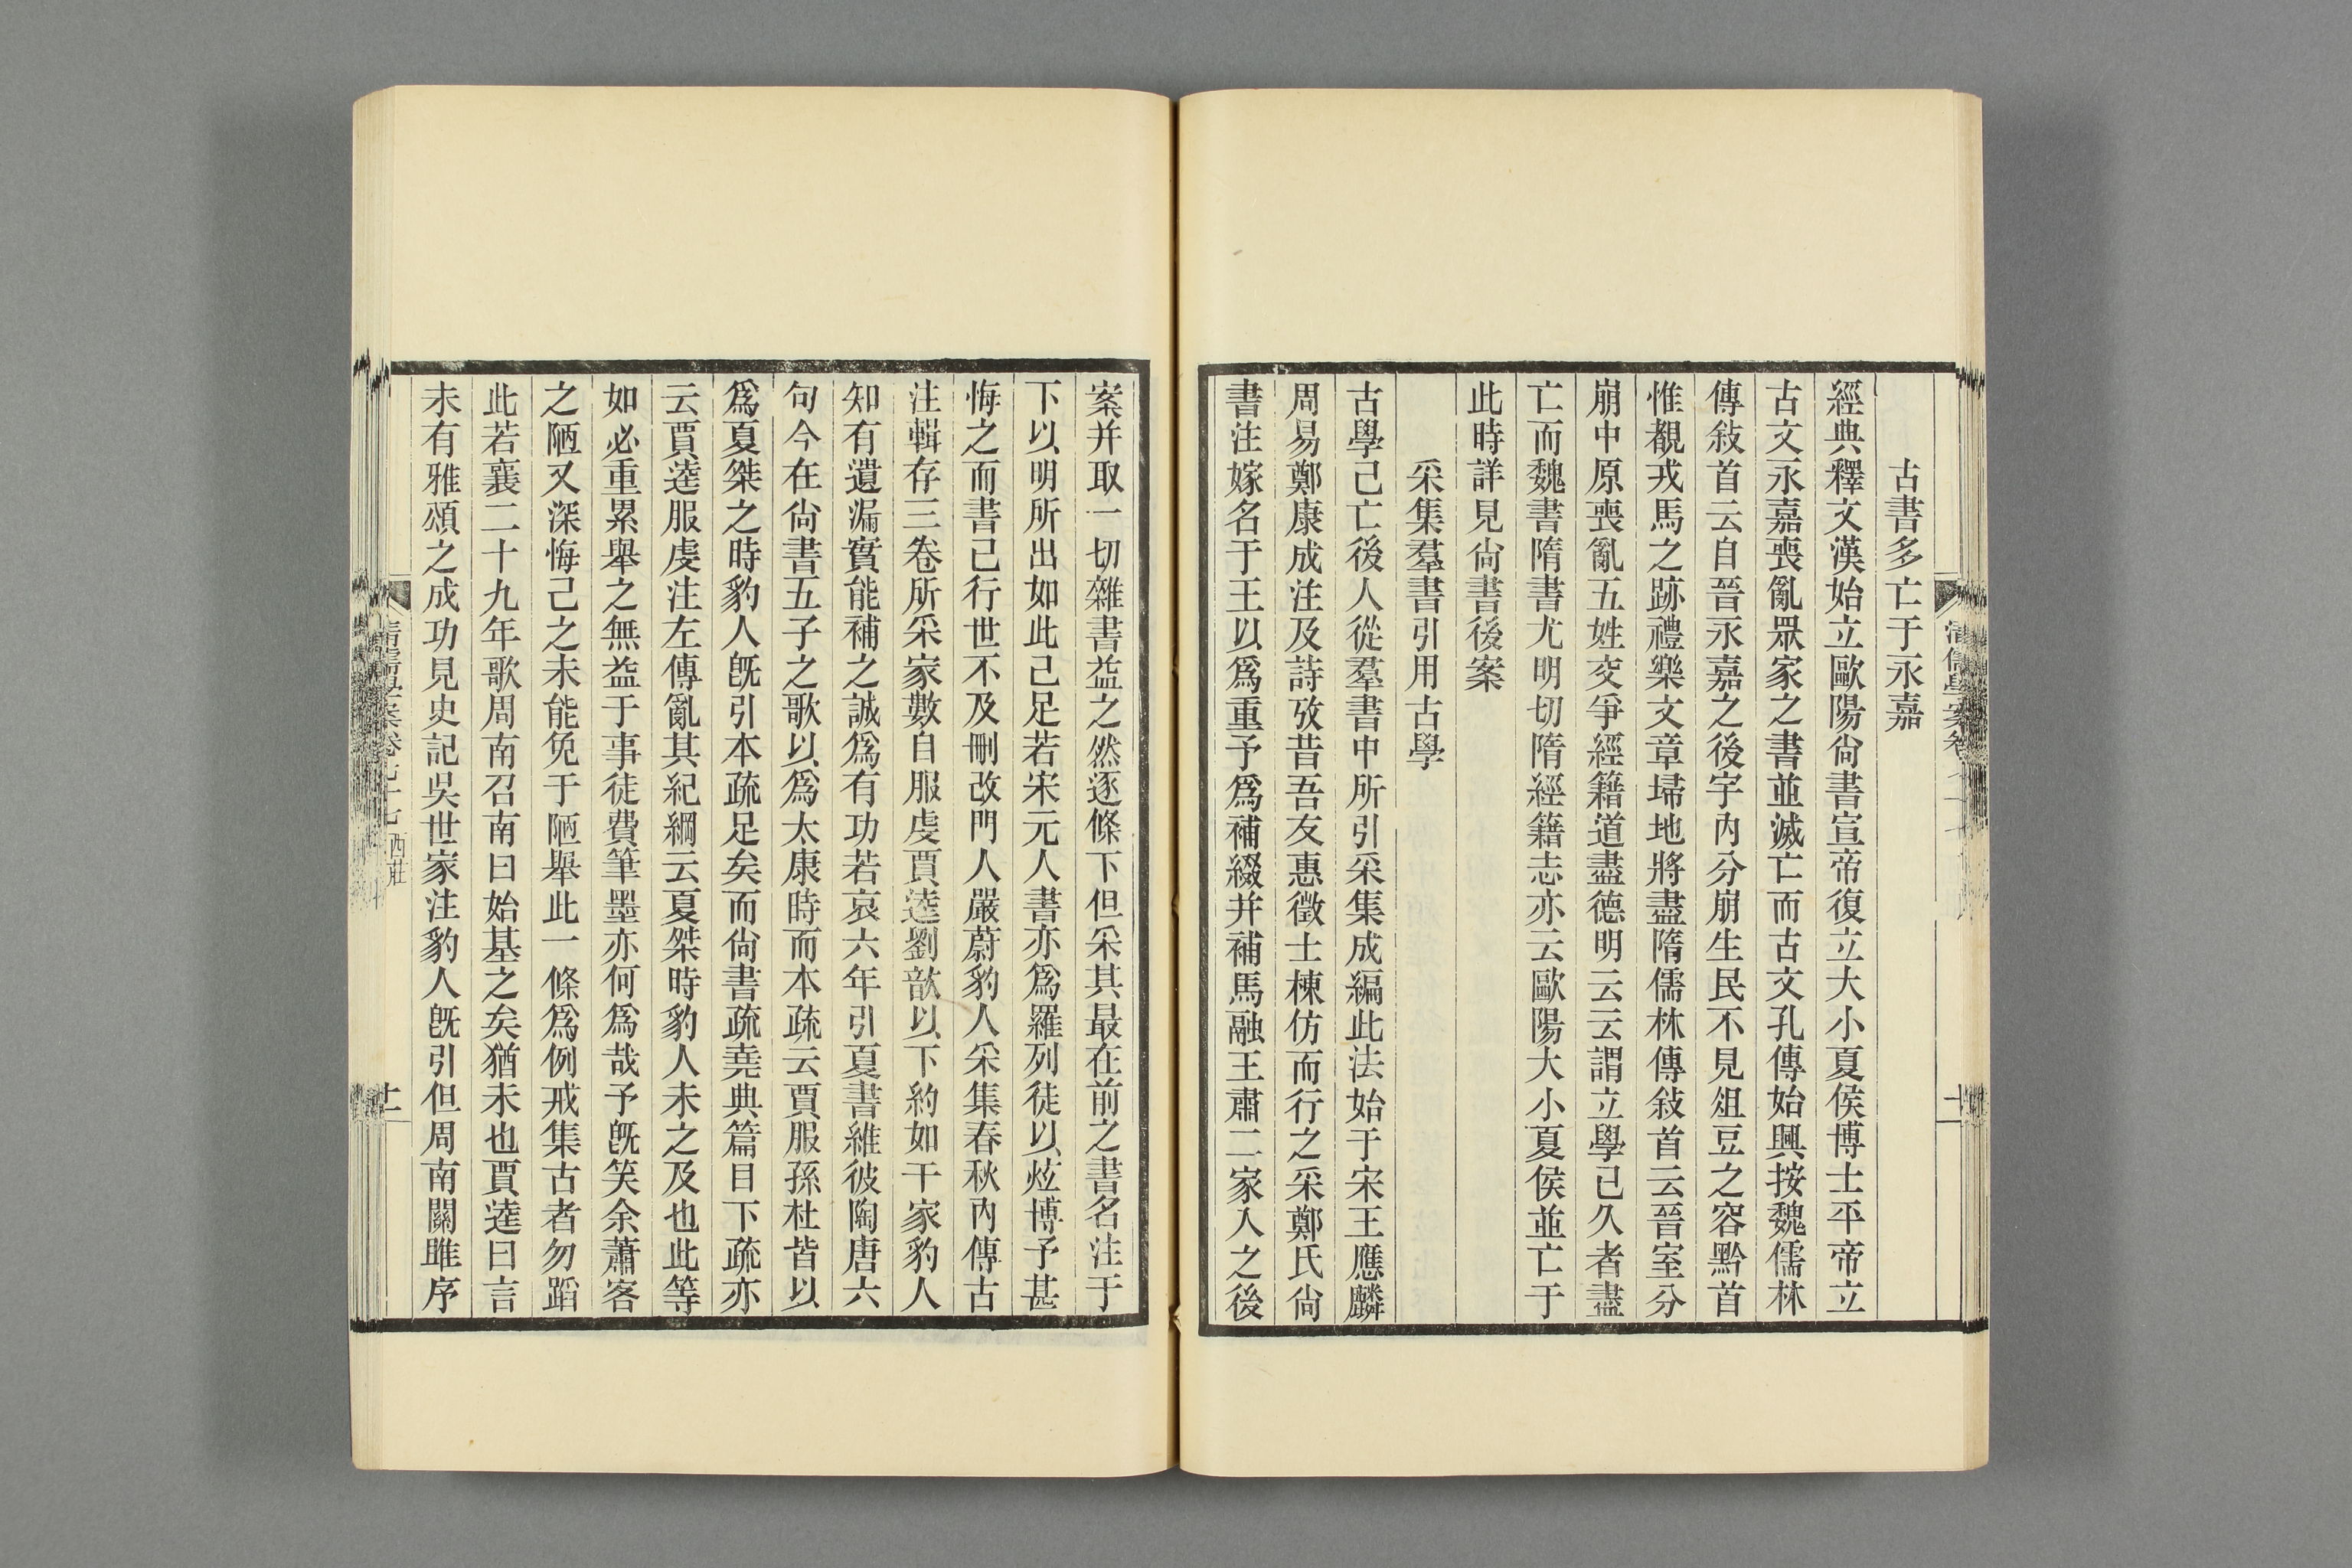 古書多亡于永嘉
經典釋文漢始立歐陽尙書宣帝復立大小夏侯博士平帝立
古文永嘉喪亂眾家之書並滅亡而古文孔傳始興按魏儒林
傳敍首云自晉永嘉之後宇內分崩生民不見俎豆之容黔首
惟覩戎馬之跡禮樂文章埽地將盡隋儒林傳敍首云晉室分
崩中原喪亂五姓交爭經籍道盡德明云云謂立學己久者盡
亡而魏書隋書尤明切隋經籍志亦云歐陽大小夏侯並亡于
此時詳見尙書後案
采集羣書引用古學
古學己亡後人從羣書中所引采集成編此法始于宋王應麟
周易鄭康成注及詩攷昔吾友惠徵士棟仿而行之采鄭氏尙
書注嫁名于王以爲重予爲補綴并補馬融王肅二家入之後
案并取一切雜書益之然逐條下但采其最在前之書名注于
下以明所出如此己足若宋元人書亦爲羅列徒以炫博予甚
悔之而書己行世不及刪改門人嚴蔚豹人采集春秋內傳古
注輯存三卷所采家數自服虔賈逵劉歆以下約如干家豹人
知有遺漏實能補之誠爲有功若哀六年引夏書維彼陶唐六
句今在尙書五子之歌以爲太康時而本疏云賈服孫杜皆以
爲夏桀之時豹人旣引本疏足矣而尙書疏堯典篇目下疏亦
云賈逵服虔注左傳亂其紀綱云夏桀時豹人未之及也此等
如必重累舉之無益于事徒費筆墨亦何爲哉予旣笑余蕭客
之陋又深悔己之未能免于陋舉此一條爲例戒集古者勿蹈
此若襄二十九年歌周南召南曰始基之矣猶未也賈逵曰言
未有雅頌之成功見史記吳世家注豹人旣引但周南關雎序
清儒學案卷七十七 西莊
十一